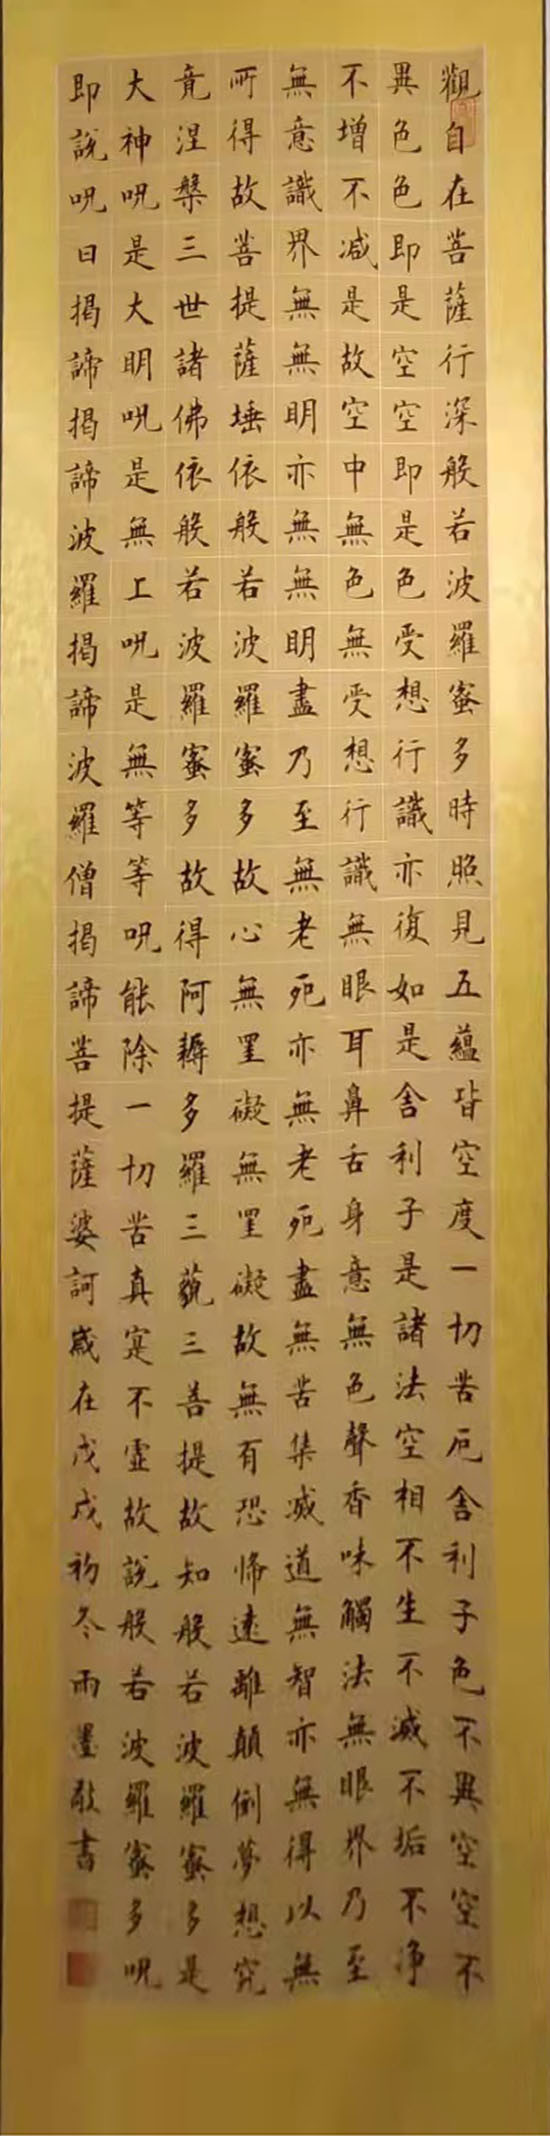 觀自在菩薩行深般若波羅蜜多時照見五蘊皆空度一切苦厄舍利子色不異空空不
異色色即是空空即是色受想行識亦復如是舍利子是諸法空相不生不滅不垢不淨
不增不減是故空中無色無受想行識無眼耳鼻舌身意無色聲香味觸法無眼界乃至
無意識界無無明亦無無明盡乃至無老死亦無老死盡無苦集滅道無智亦無得以無
所得故菩提薩埵依般若波羅蜜多故心無罣礙無罣礙故無有恐怖遠離顛倒夢想究
竟涅槃三世諸佛依般若波羅蜜多故得阿耨多羅三藐三菩提故知般若波羅蜜多是
大神呪是大明呪是無上呪是無等等呪能除一切苦真寔不虛故說般若波羅蜜多呪
即說呪曰揭諦揭諦波羅揭諦波羅僧揭諦菩提薩婆訶歲在戊戌初冬雨墨敬書